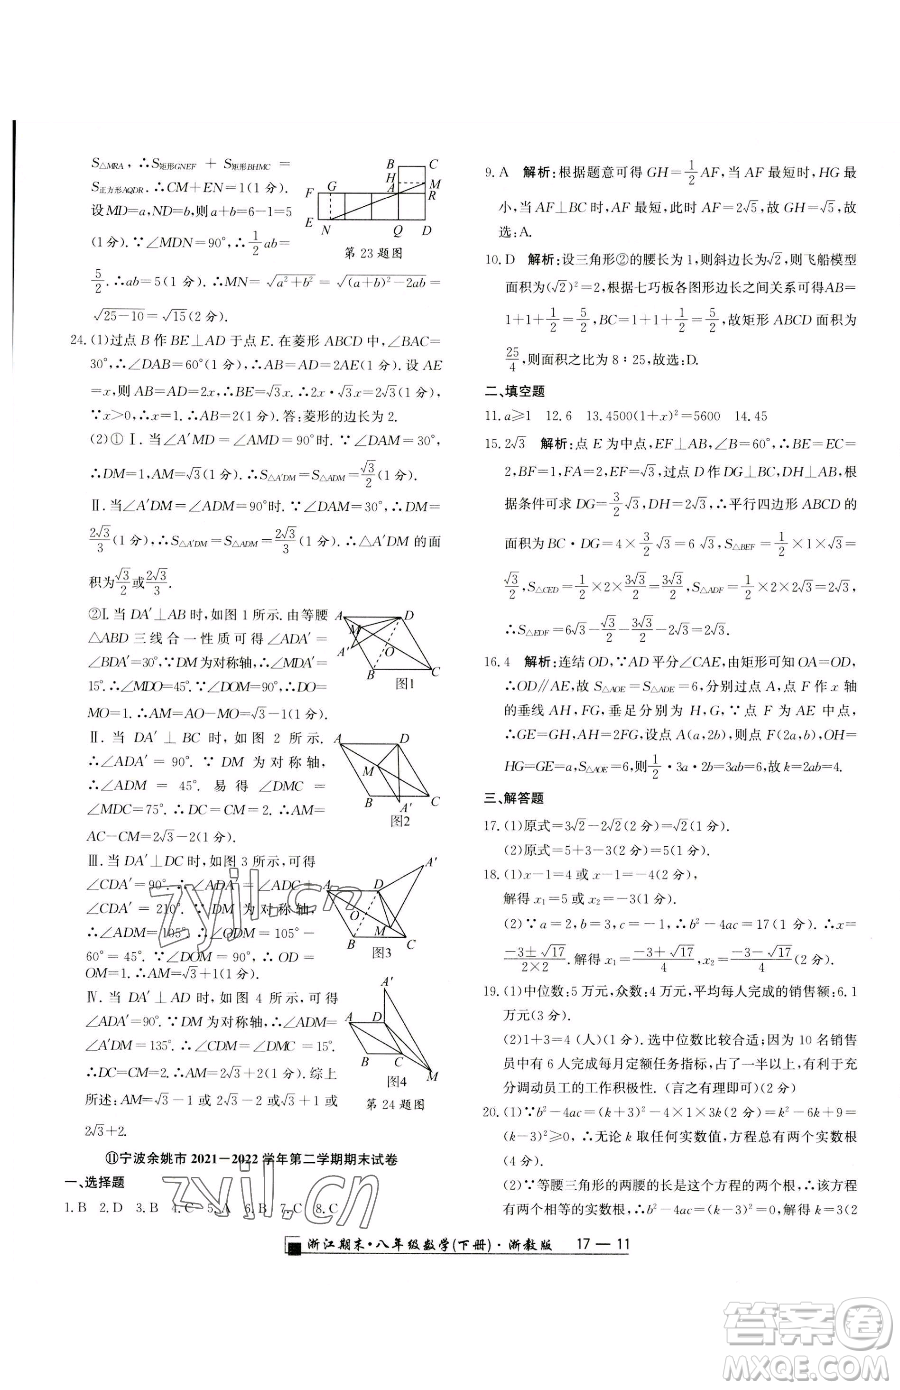 S△MRA, ∴S矩形GNEF + S矩形BHMC =
S正方形AQDR. ∴CM+EN=1(1 分).
设 MD=a, ND=b, 则 a+b=6-1=5
(1 分). ∵∠MDN=90°, ∴1/2 ab=
5/2. ∴ab=5(1 分). ∴MN=√(a²+b²)=√((a+b)²-2ab)=
√(25-10)=√15(2 分).
B C
H M
F G A R
E N Q D
第 23 题图
24. (1)过点 B 作 BE⊥AD 于点 E. 在菱形 ABCD 中, ∠BAC=
30°, ∴∠DAB=60°(1 分), ∴AB=AD=2AE(1 分). 设 AE
=x, 则 AB=AD=2x(1 分), ∴BE=√3x. ∴2x·√3x=2√3(1 分).
∵x>0, ∴x=1. ∴AB=2(1 分). 答:菱形的边长为 2.
(2)① Ⅰ. 当∠A′MD=∠AMD=90°时. ∵∠DAM=30°,
∴DM=1, AM=√3(1 分). ∴S△A′DM=S△ADM=√3/2(1 分).
Ⅱ. 当∠A′DM=∠ADM=90°时. ∵∠DAM=30°, ∴DM=
2√3/3(1 分), ∴S△A′DM=S△ADM=2√3/3(1 分). ∴△A′DM 的面
积为√3/2或2√3/3.
②Ⅰ. 当 DA′⊥AB 时, 如图 1 所示. 由等腰
△ABD 三线合一性质可得∠ADA′=
∠BDA′=30°. ∵DM 为对称轴, ∴∠ADM=
15°. ∴∠MDO=45°. ∵∠DOM=90°, ∴DO=
MO=1. ∴AM=AO-MO=√3-1(1 分).
A D
M
A′ O
B C
图1
Ⅱ. 当 DA′⊥BC 时, 如图 2 所示, 可得
∠ADA′=90°. ∵DM 为对称轴, ∴∠ADM=
∠A′DM=45°. 易得∠DMC=
∠MDC=75°. ∴DC=CM=2. ∴AM=
AC-CM=2√3-2(1 分).
A D
M
B A′ C
图2
Ⅲ. 当 DA′⊥DC 时, 如图 3 所示, 可得
∠CDA′=90°. ∴∠ADA′=∠ADC+
∠CDA′=210°. ∵DM 为对称轴,
∴∠ADM=105°. ∴∠ODM=105°-
60°=45°. ∵∠DOM=90°, ∴OD=
OM=1. ∴AM=√3+1(1 分).
A D A′
O M
B C
图3
Ⅳ. 当 DA′⊥AD 时, 如图 4 所示, 可得
∠ADA′=90°. ∵DM 为对称轴, ∴∠ADM=
135°. ∴∠CDM=∠DMC=15°. ∴DC=
CM=2. ∴AM=2√3+2(1 分). 综上
所述:AM=√3-1 或 2√3-2 或√3+1 或
2√3+2.
A′
A D
B C
M
图4
第 24 题图
⑪宁波余姚市 2021—2022 学年第二学期期末试卷
一、选择题
1. B 2. D 3. B 4. C 5. A 6. B 7. C 8. C
9. A 解析:根据题意可得 GH=1/2 AF, 当 AF 最短时, HG 最
小, 当 AF⊥BC 时, AF 最短, 此时 AF=2√5, 故 GH=√5, 故
选:A.
10. D 解析:设三角形②的腰长为 1, 则斜边长为√2, 则飞船模型
面积为(√2)²=2, 根据七巧板各图形边长之间关系可得AB=
1+1+1/2=5/2, BC=1+1+1/2=5/2, 故矩形 ABCD 面积为
25/4, 则面积之比为 8∶25, 故选:D.
二、填空题
11. a≥1 12. 6 13. 4500(1+x)²=5600 14. 45
15. 2√3 解析:点 E 为中点, EF⊥AB, ∠B=60°, ∴BE=EC=
2, BF=1, FA=2, EF=√3, 过点 D 作 DG⊥BC, DH⊥AB,
根据条件可求 DG=3/2√3, DH=2√3, ∴平行四边形 ABCD 的
的面积为 BC·DG=4×3/2√3=6√3, S△BEF=1/2×1×√3=
√3/2, S△CED=1/2×2×3√3/2=3√3/2, S△ADF=1/2×2×2√3=2√3,
∴S△EDF=6√3-√3/2-3√3/2-2√3=2√3.
16. 4 解析:连结 OD, ∵AD 平分∠CAE, 由矩形可知 OA=OD,
∴OD∥AE, 故 S△AOE=S△ADE=6, 分别过点 A, 点 F 作 x 轴
的垂线 AH, FG, 垂足分别为 H, G, ∵点 F 为 AE 中点,
∴GE=GH, AH=2FG, 设点 A(a, 2b), 则点 F(2a, b), OH=
HG=GE=a, S△AOE=6, 则1/2·3a·2b=6, 故 k=2ab=4.
三、解答题
17. (1)原式=3√2-2√2(1 分)=√2(1 分).
(2)原式=5+3-3(2 分)=5(2 分).
18. (1)x-1=4 或 x-1=-4(2 分),
解得 x₁=5 或 x₂=-3(1 分).
(2)∵a=2, b=3, c=-1, ∴b²-4ac=17(1 分). ∴x=
(-3±√17)/(2×2). 解得 x₁=(-3+√17)/4, x₂=(-3-√17)/4(2 分).
19. (1)中位数:5 万元, 众数:4 万元, 平均每人完成的销售额:6.1
万元(3 分).
(2)1+3=4 (人)(1 分). 选中位数比较合适;因为 10 名销售
员中有 6 人完成每月定额任务指标, 占了一半以上, 有利于充
分调动员工的工作积极性. (言之有理即可)(2 分)
20. (1)∵b²-4ac=(k+3)²-4×1×3k(2 分)=k²-6k+9=
(k-3)²≥0(1 分), ∴无论 k 取何实数, 该方程总有实数根
(1 分).
(2)∵等腰三角形的两腰的长是这个方程的两个根, ∴k-3=
0(1 分), ∴k=3(1 分).
浙江期末·八年级数学(下册)·浙教版 17 — 11
zyjl.cn
zyjl.cn
答案圈
MXQE.COM